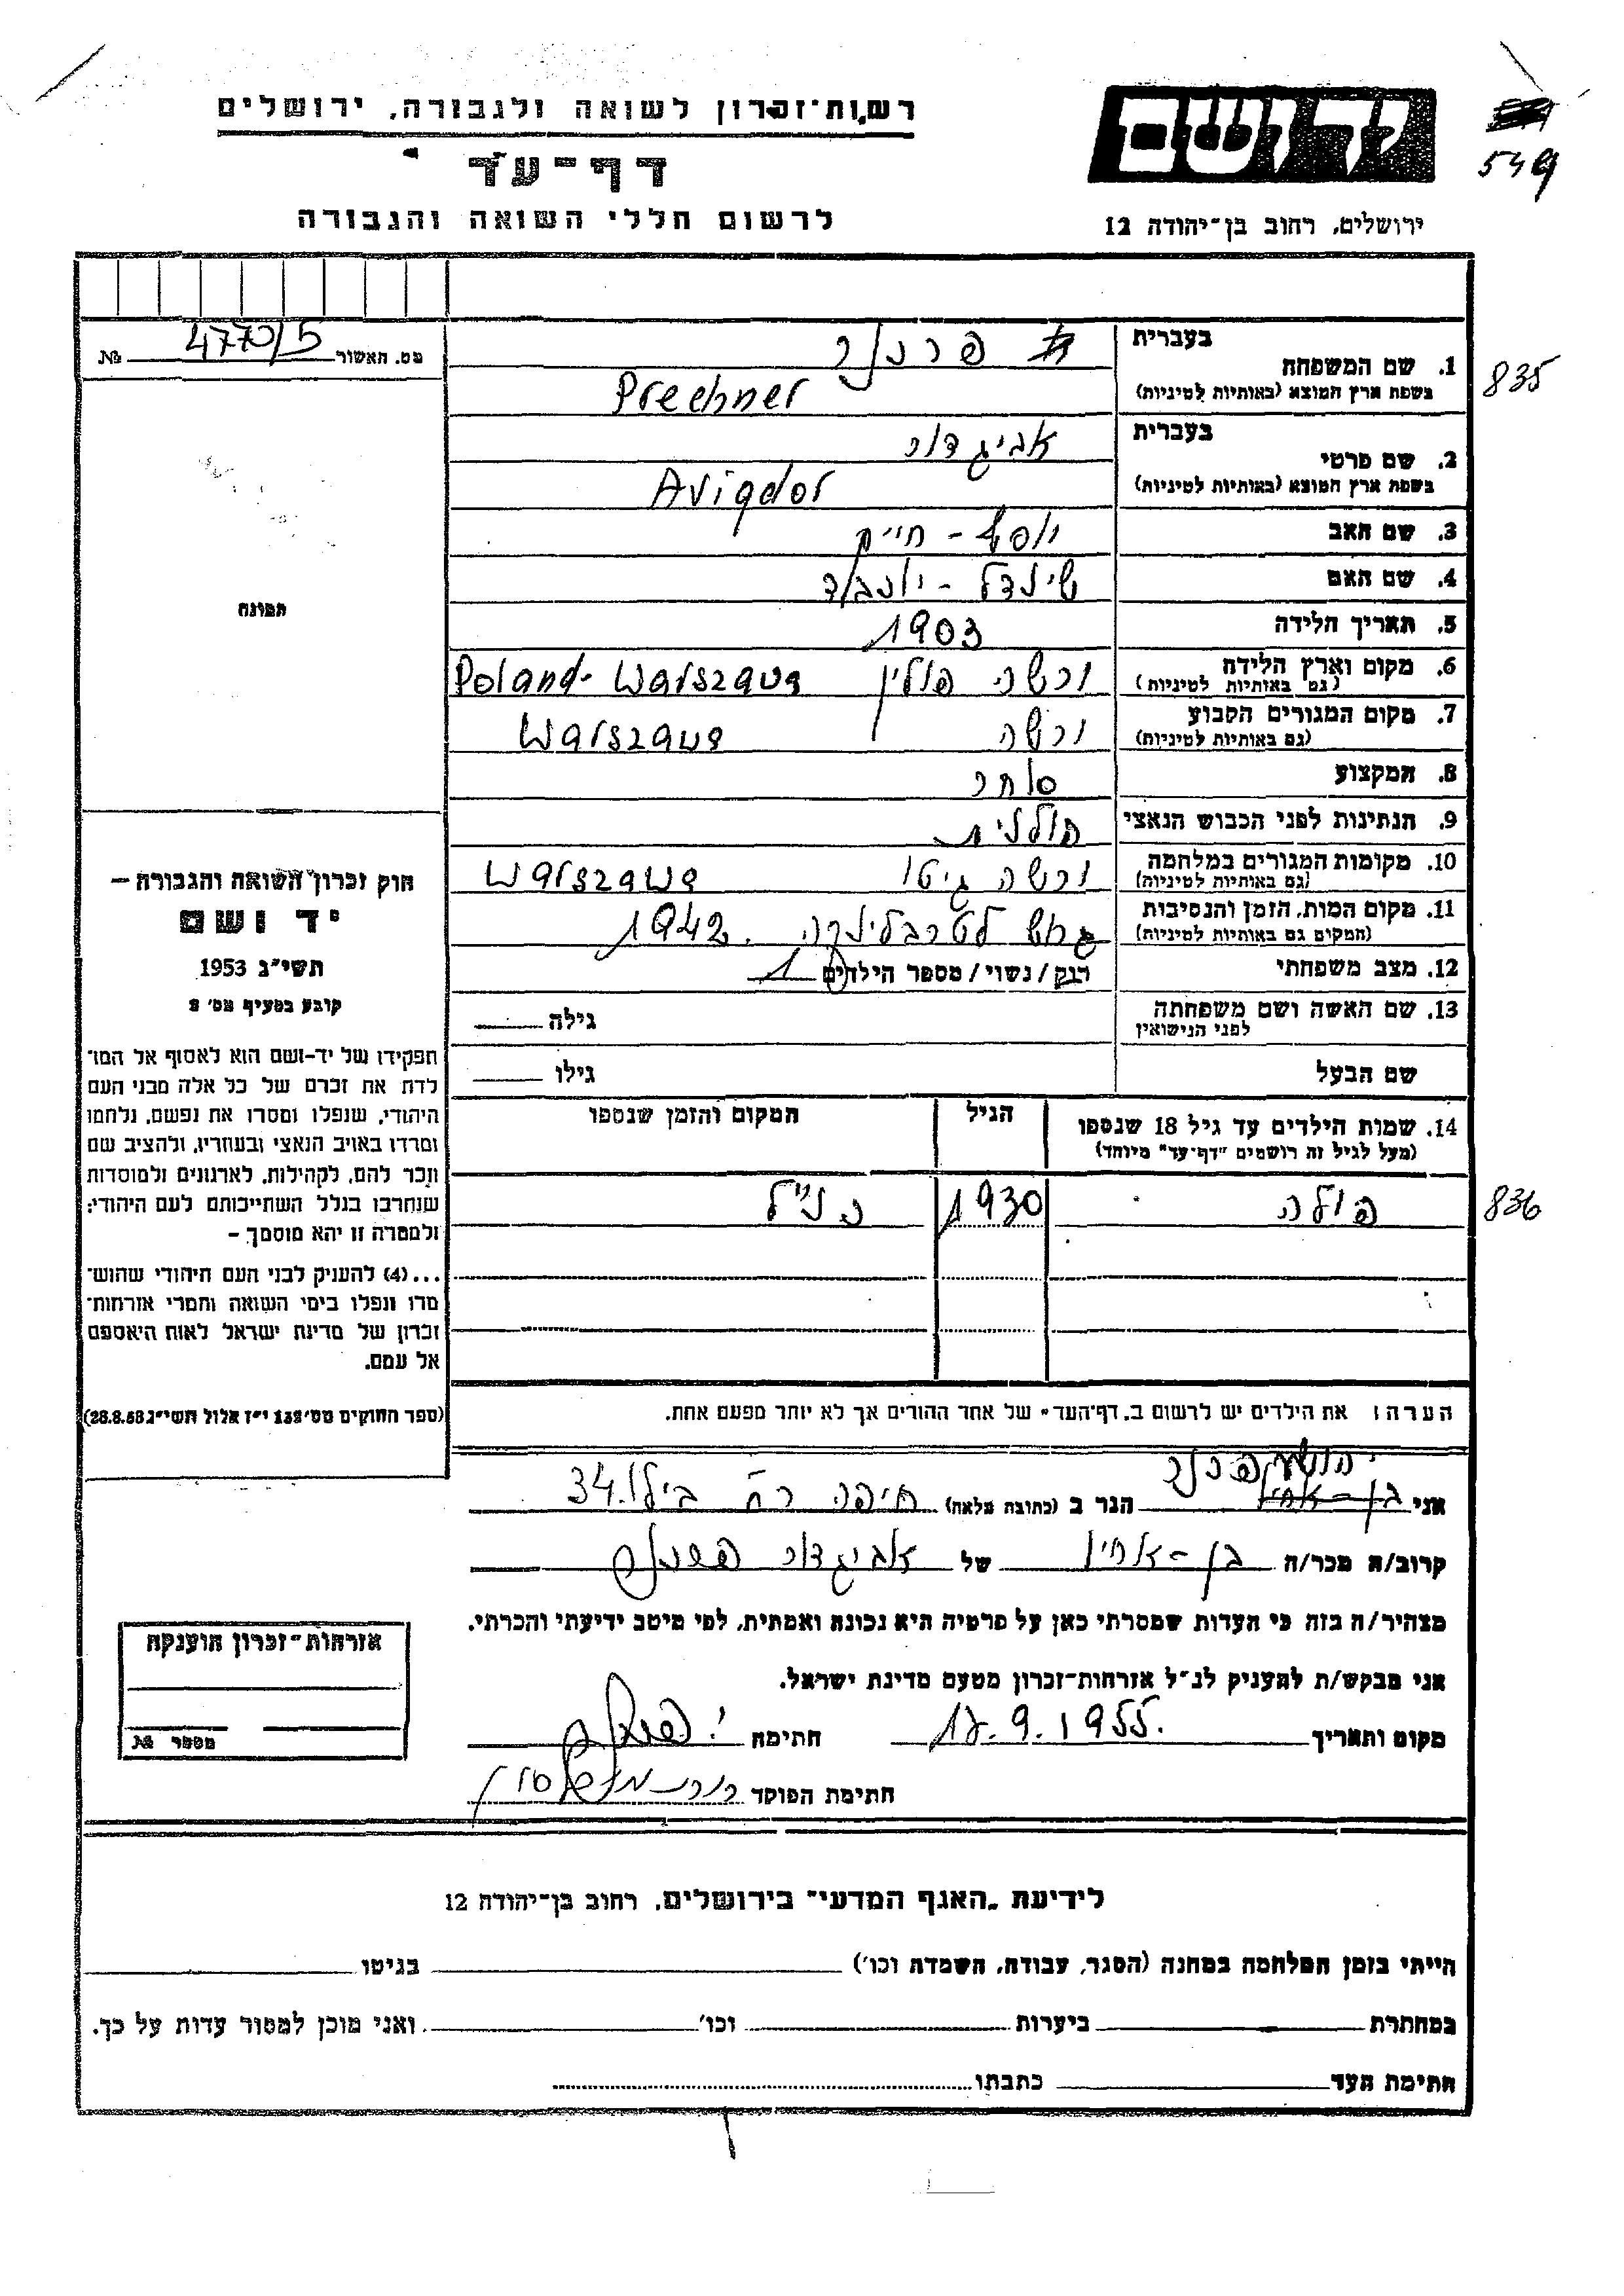 רשות־זכרון לשואה ולגבורה, ירושלים
דף-עד
לרשום חללי השואה והגבורה
יד ושם
ירושלים, רחוב בן־יהודה 12
549
מס. האשור 4770/5 №
בעברית פרכנר
1. שם המשפחה
בשפת ארץ המוצא (באותיות לטיניות) Prechner
835
בעברית אביגדור
2. שם פרטי
בשפת ארץ המוצא (באותיות לטיניות) Avigdor
3. שם האב יוסף - חיים
4. שם האם שינדל -
5. תאריך הלידה 1903
6. מקום וארץ הלידה ורשה פולין Poland - Warszawa
(גם באותיות לטיניות)
7. מקום המגורים הקבוע ורשה Warszawa
(גם באותיות לטיניות)
8. המקצוע סוחר
9. הנתינות לפני הכבוש הנאצי פולנית
10. מקומות המגורים במלחמה ורשה גיטו Warszawa
(גם באותיות לטיניות)
11. מקום המות, הזמן והנסיבות גורש לטרבלינקה. 1942
(המקום גם באותיות לטיניות)
12. מצב משפחתי רוק/נשוי/מספר הילדים 1
13. שם האשה ושם משפחתה גילה
לפני הנישואין
שם הבעל גילו
14. שמות הילדים עד גיל 18 שנספו הגיל המקום והזמן שנספו
(מעל לגיל זה רושמים "דף־עד" מיוחד)
פולה 1930 כנ"ל
836
הערה: את הילדים יש לרשום ב„דף־העד" של אחד ההורים אך לא יותר מפעם אחת.
תמונה
חוק זכרון השואה והגבורה —
יד ושם
תשי"ג 1953
קובע בסעיף מס' 2
תפקידו של יד-ושם הוא לאסוף אל המו־
לדת את זכרם של כל אלה מבני העם
היהודי, שנפלו ומסרו את נפשם, נלחמו
ומרדו באויב הנאצי ובעוזריו, ולהציב שם
וזכר להם, לקהילות, לארגונים ולמוסדות
שנחרבו בגלל השתייכותם לעם היהודי;
ולמטרה זו יהא מוסמך —
...(4) להעניק לבני העם היהודי שהוש־
מדו ונפלו בימי השואה והמרי אזרחות־
זכרון של מדינת ישראל לאות היאספם
אל עמם.
(ספר החוקים מס' 132 י"ז אלול תשי"ג 28.8.53)
יהושע פרכנר
אני בן-אחיו הגר ב (כתובת מלאה) חיפה רח' ביל"ו 34.
קרוב/ה מכר/ה בן-אחיו של אביגדור פרכנר
מצהיר/ה בזה כי העדות שמסרתי כאן על פרטיה היא נכונה ואמתית, לפי מיטב ידיעתי והכרתי.
אני מבקש/ת להעניק לנ"ל אזרחות־זכרון מטעם מדינת ישראל.
מקום ותאריך 17.9.1955. חתימה י. פרכנר
חתימת הפוקד
אזרחות־זכרון הוענקה
מספר №
לידיעת „האגף המדעי" בירושלים, רחוב בן־יהודה 12
הייתי בזמן המלחמה במחנה (הסגר, עבודה, השמדה וכו') בגיטו
במחתרת ביערות וכו' ואני מוכן למסור עדות על כך.
חתימת העד כתבתו